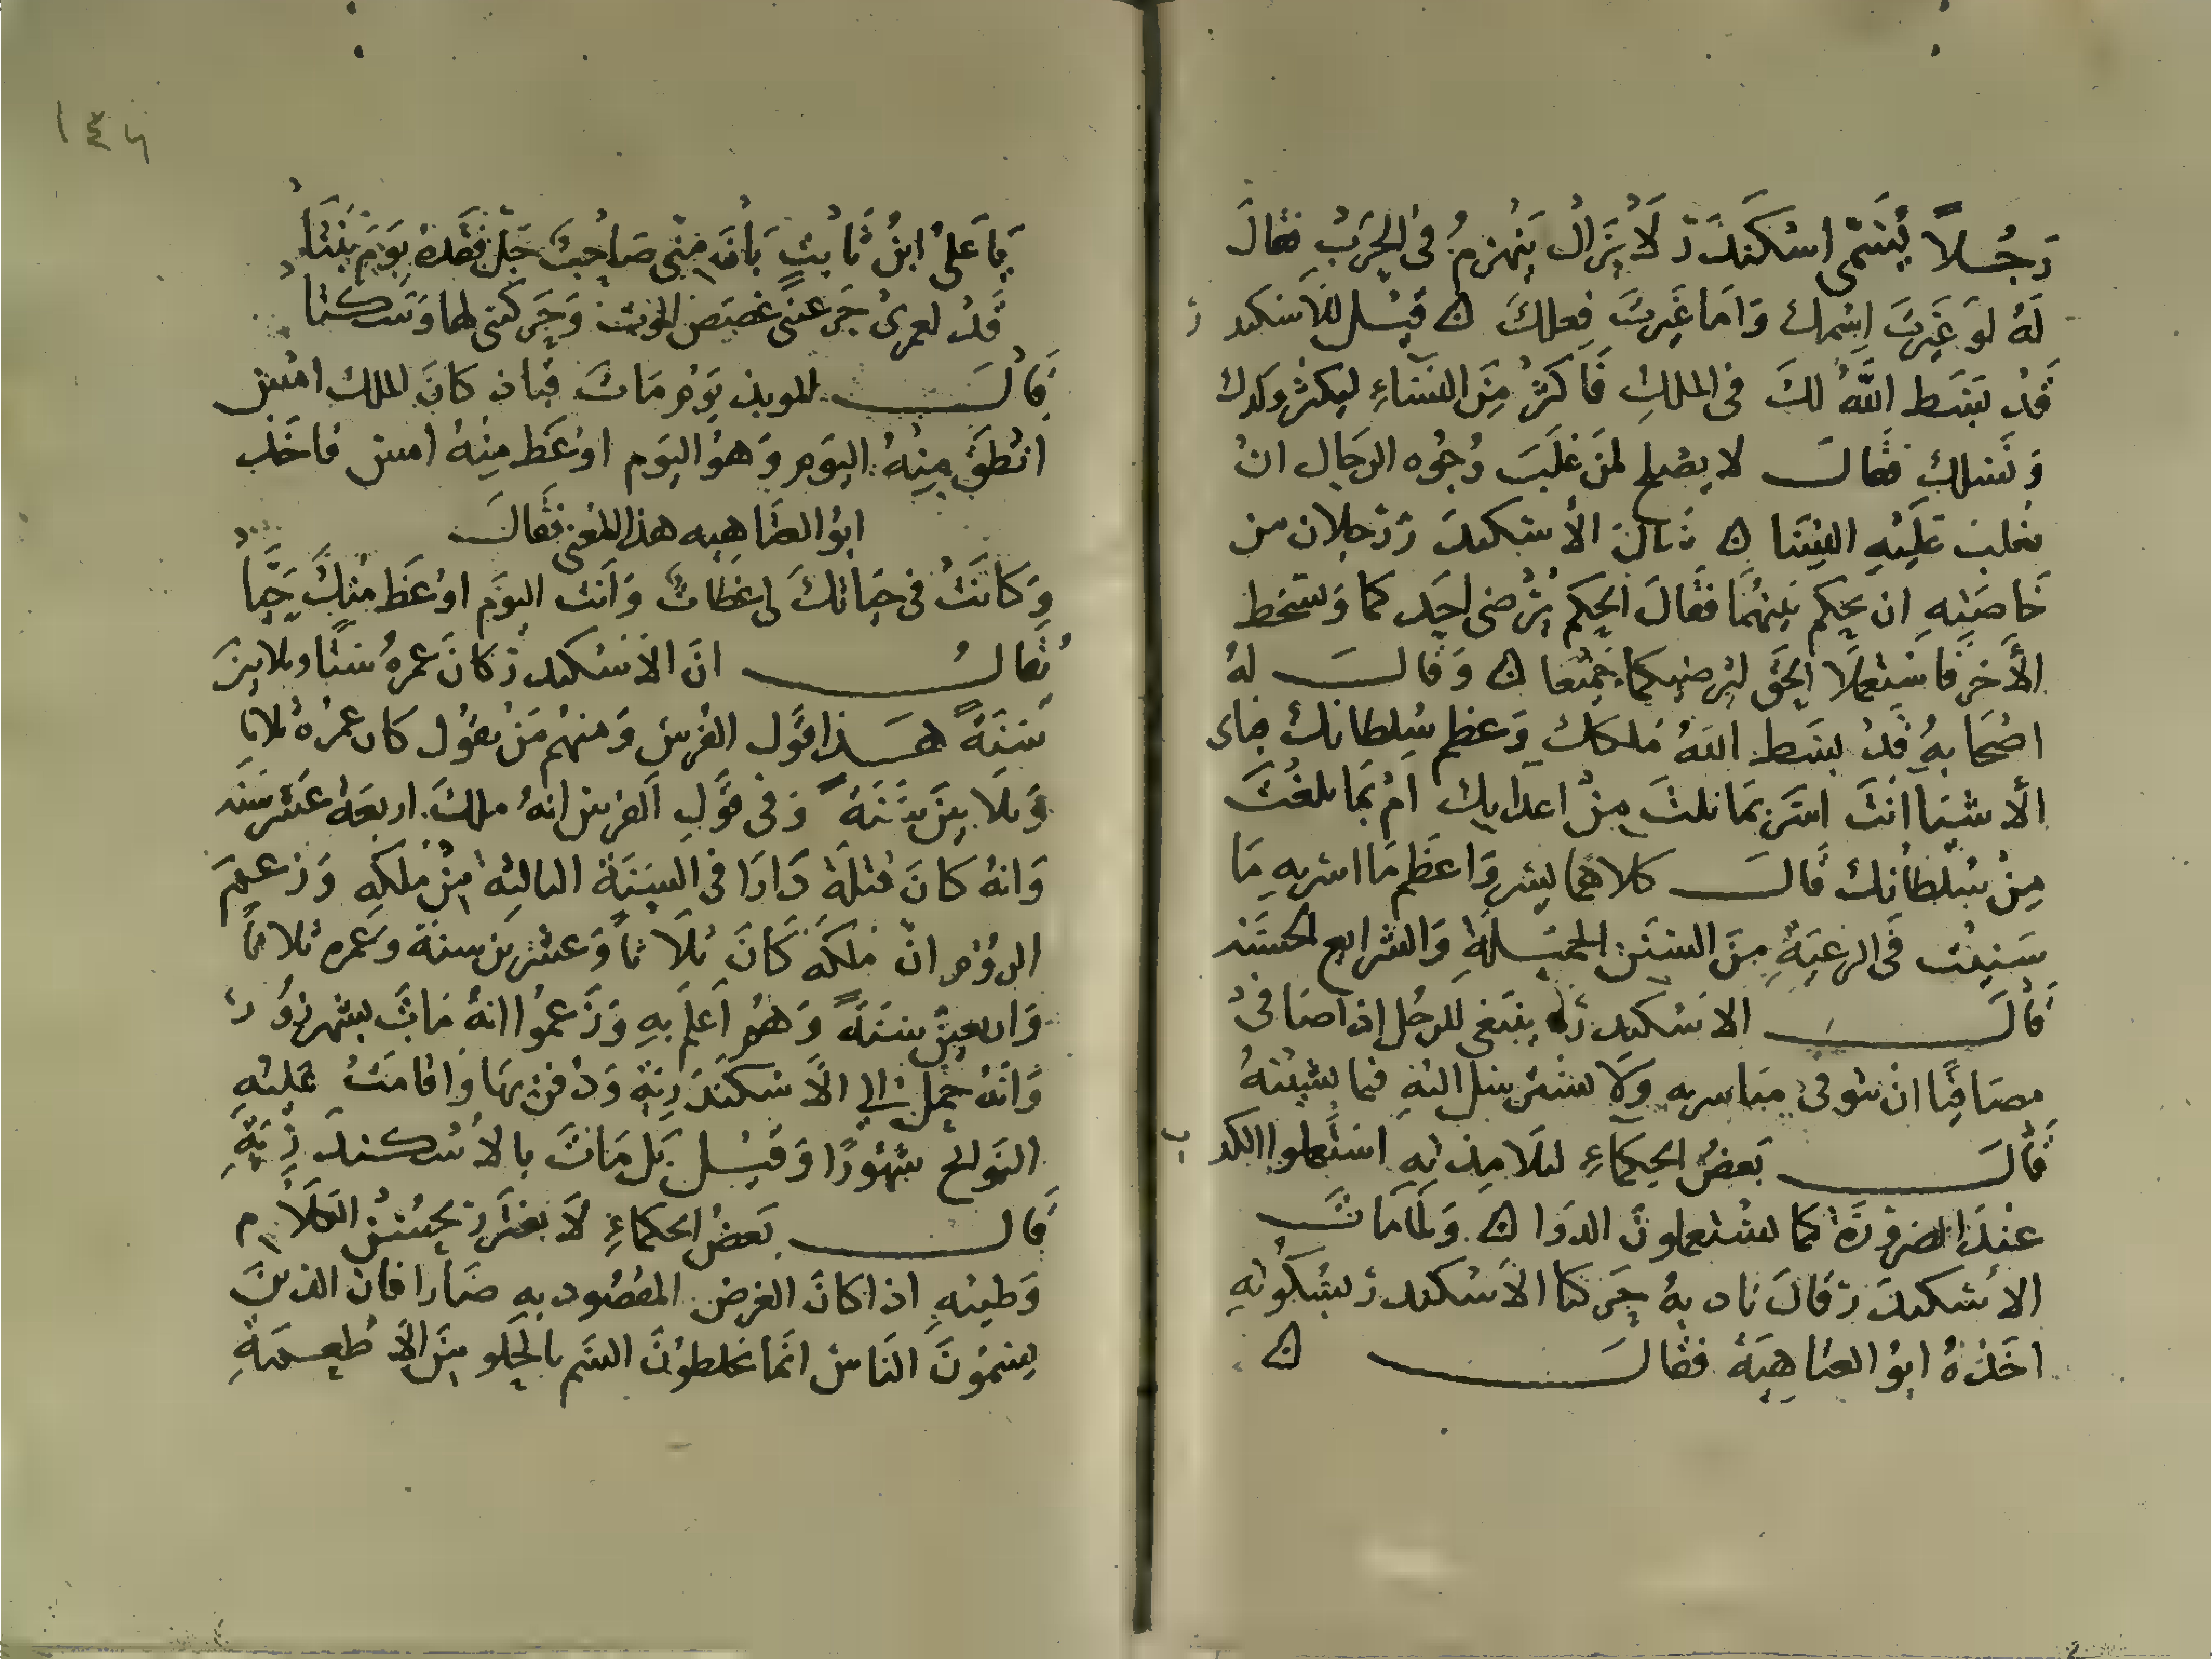 رَجُلاً يُسَمّى اسْكَندَر لَا يَزَالُ يَنهَزمُ فى الحَرَبْ فقالَ
لَهُ لوَ غَيرتَ اسْمك وَامَا غَيرتَ فِعلكَ ۞ قيْل للاسَكندر
قَدْ بَسَط اللَّهُ لكَ فى الملكِ فَاكثرْ مِنَ النسَاءِ ليكثر ولدك
وَنسلك فقالَ لا يصلح لمنَ غلَبَ وُجُوه الرجَال انْ
تغلبَ عَليْهِ النِسَا ۞ الأسْكندَر رَجلان من
خَاصَتِهِ ان يحكم بَينهُمَا فقَالَ الحكم يُرْضى احَدكما وَيسْخط
الأخرَ فاسَتعملَا الحَق ليُرضيكما جَميْعا ۞ وَقالَ لهُ
اصْحَابهُ قَدْ بسَط اللهُ مُلككَ وَعظم سُلطانكَ فباى
الأشيَا انتَ اسَرّ بمَا نلتَ مِنْ اعدايك امْ بمَا بلغْتَ
مِنْ سُلطانك قَالَ كلاهما يسُر وَاعظَم مَا اسر بهِ مَا
سَنيْت فى الرعيَةِ مِنَ السنَن الجميْلةِ وَالشرايع الحسَنه
قَالَ الاسْكندر ينبَغى للرجُل إذا صَافى
مصَافيًا انْ يتوقى وَلا يسْترسل اليهِ فيما يشيْنهُ
قَالَ بَعضُ الحكمَاءِ لتلامِذتهِ اسَتعملوا الكذب
عنِدَ الضرورَة كما يسْتعملونَ الدوَا ۞ وَلمَامَاتَ
الاسْكندَر قَالَ نادبهُ حَركنا الاَسْكندر بسُكُوتهِ
اخَذهُ ابوُ العتاهِيَة فقالَ ۞
١٤٦
يَا عَلىْ ابنُ ثابتٍ بَانَ مِنى صَاحبٌ جَلّ فقدهُ يوَمَ بنتَا
قَدْ لعمرىْ حَكيتَ لى غصَصَ الموَت وَحَركتنى لها وَسَكنتا
قالَ الموبذ يوَم مَاتَ قباذ كانَ الملك امْس
انطَق مِنهُ اليَوم وَهوُ اليوَم اوْعَظ مِنهُ امس فاخَذ
ابوُ العتَاهِيه هذا المعَنى فقَالَ
وَكانَتْ فى حيَاتكَ لى عِظاتٌ وَانتَ اليوَم اوْعَظ مْنِكَ حَيَّا
يُقالُ انَ الاَسْكندر كانَ عمرهُ ستًا وثلاثينَ
سَنَةً هَذا قوَل الفرسْ وَمنهُم مَنْ يقوُل كان عمُرهُ ثلاثا
وَثلَاثينَ سَنَةً وَفى قوَلِ الفرس انهُ ملكَ اربعَة عَشر سَنَه
وَانهُ كانَ قتلَهُ دَارَا فى السَنَة الثالثِة مِنْ مُلكَهِ وَزعَمَ
الروُم انْ مُلكَهُ كَانَ ثلَاثاً وَعشريَن سنة وَعمره ثلاثاً
وَاربعينْ سَنَةً وَهُم اَعلَم بهِ وَزَعموُا انهُ مَاتَ بشهرزوُر
وَانهُ حمل إلى الأَسْكندَرِيَة وَدُفن بهَا وَاقامَتْ عَليْهِ
النوَايح شهوُرًا وَقيْل بَل مَاتَ بالاسْكندَرِيَةِ
قالَ بَعضُ الحكماءِ لَا يغتَر بحُسْن الكلَام
وَطيبْهِ اذا كانَ الغرض المقصُود بهِ ضَارا فان الذينَ
يسمُونَ الناسْ انَما يخلطوُنَ السَم بالحلو مِنَ الأَطعِمَةِ